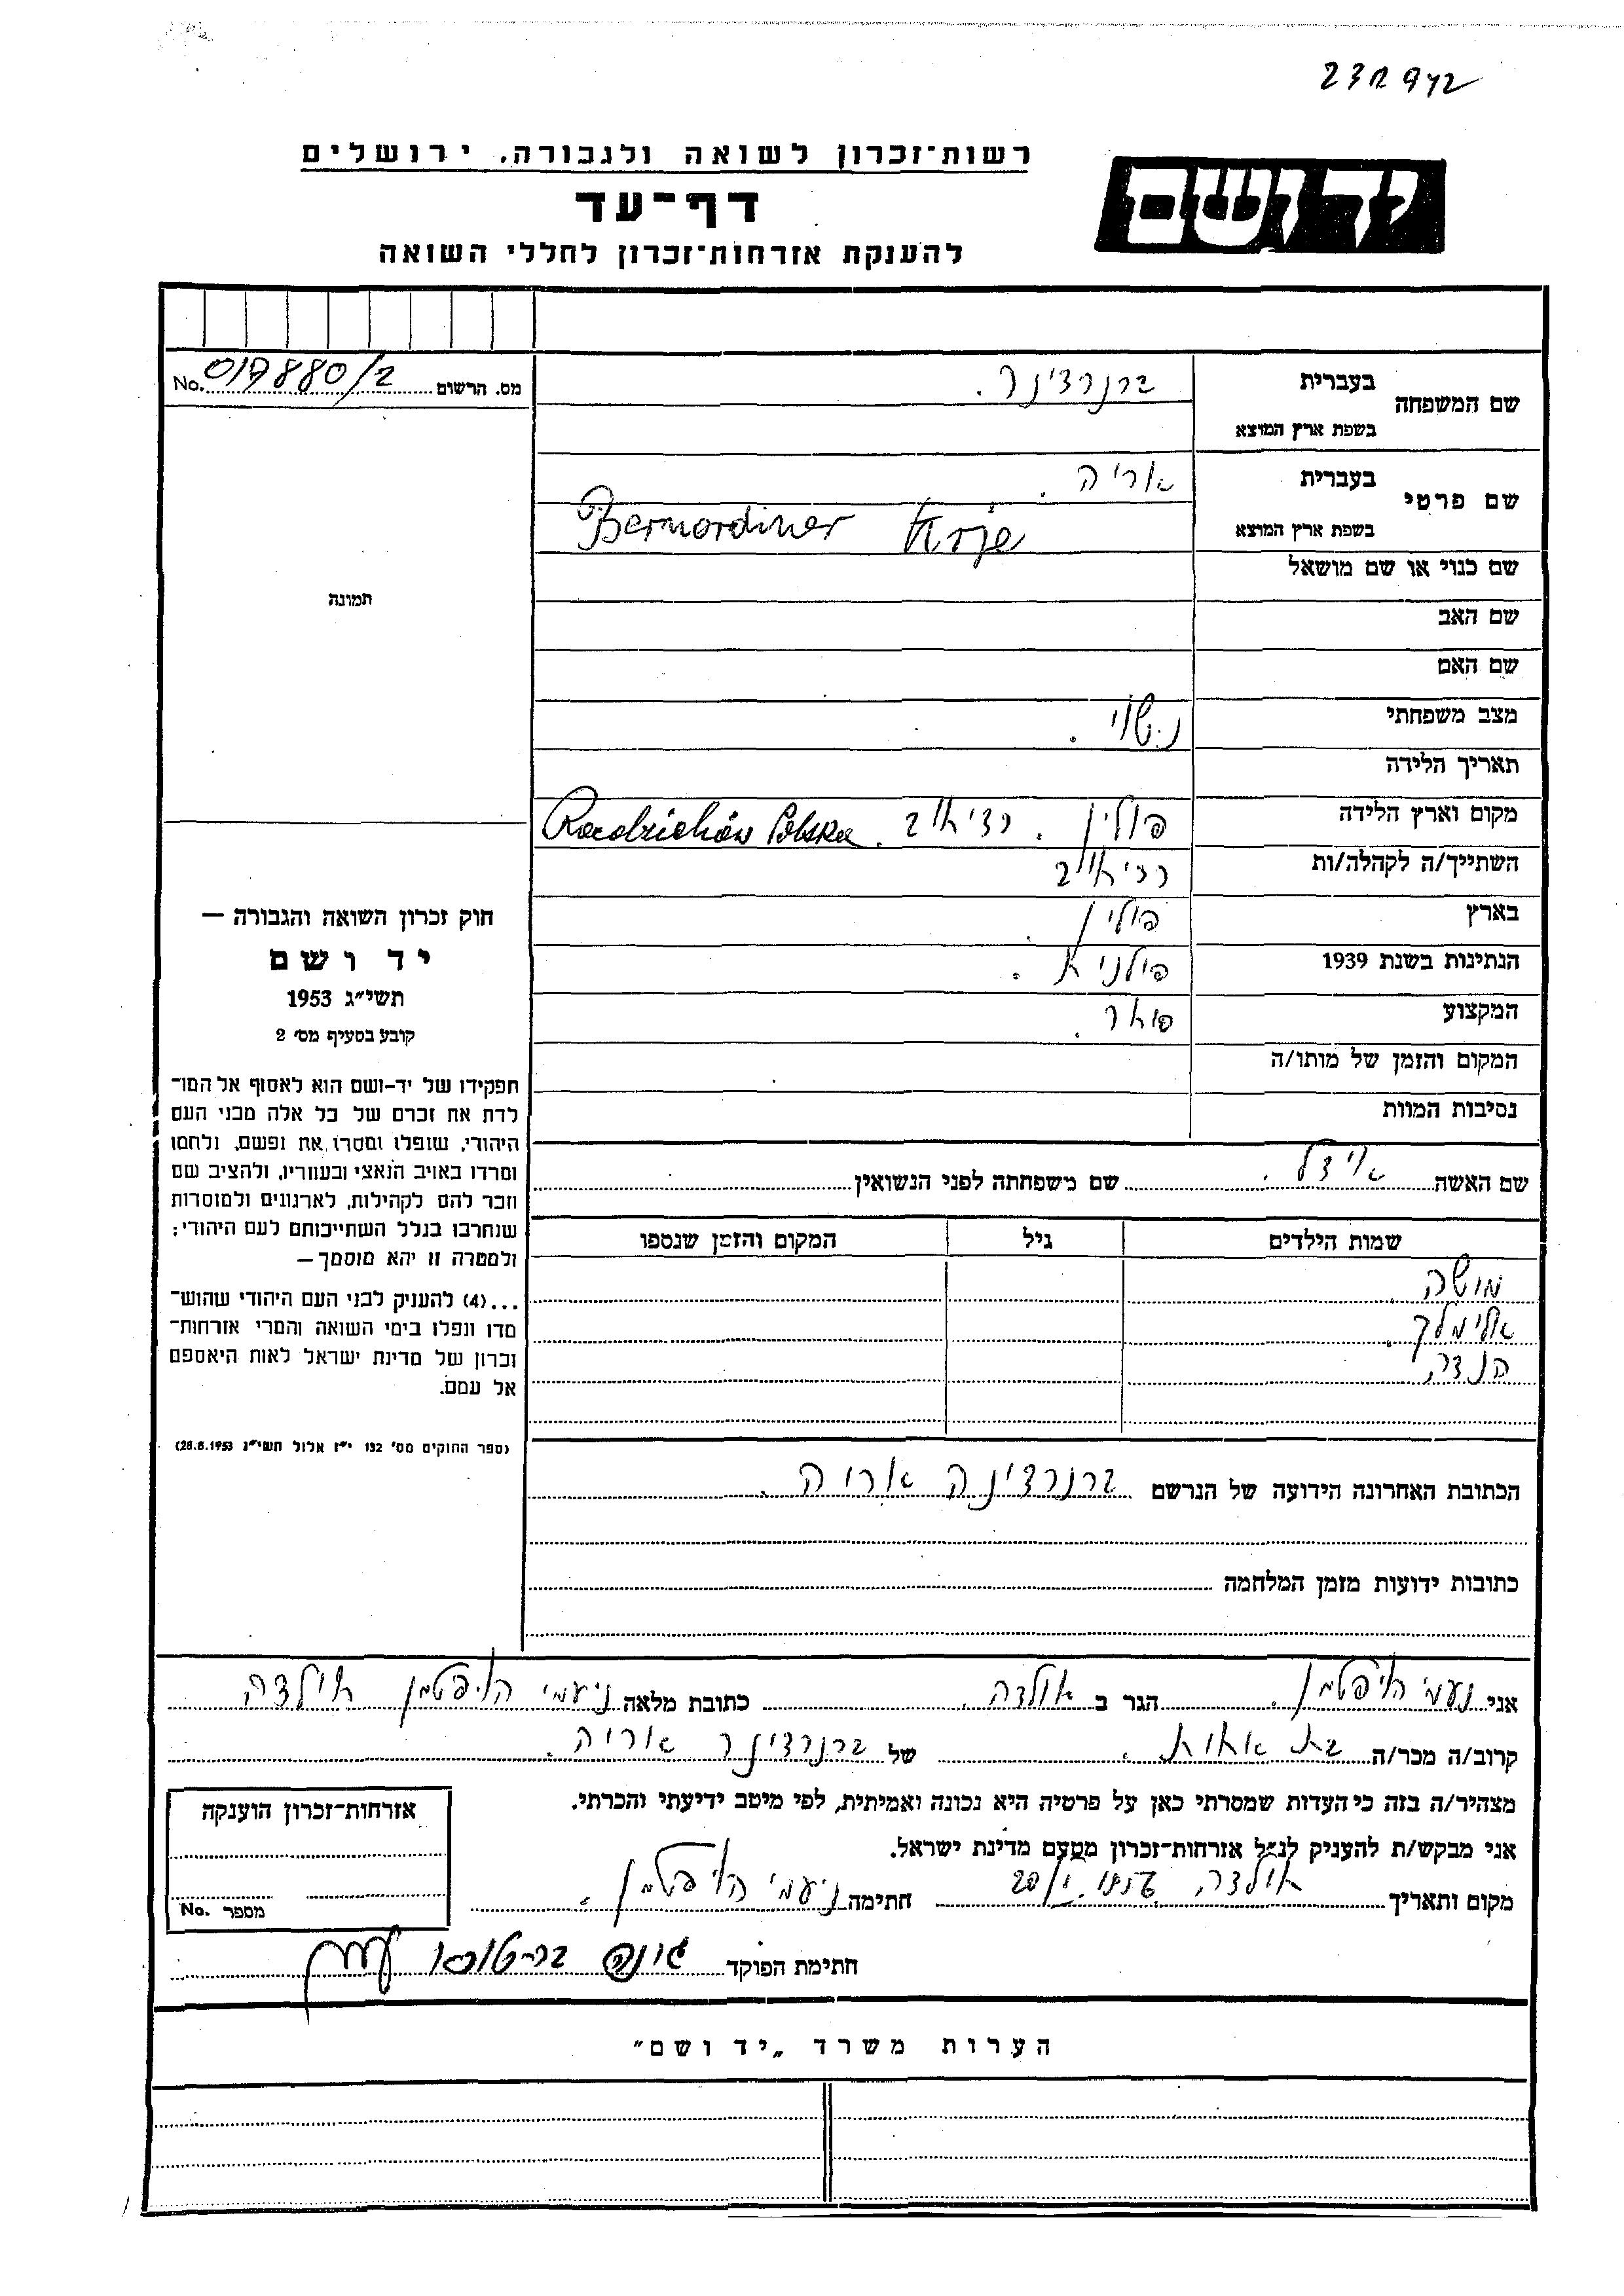 רשות־זכרון לשואה ולגבורה, ירושלים
יד ושם
דף־עד
להענקת אזרחות־זכרון לחללי השואה
No. 017880/2 מס. הרשום
שם המשפחה
בעברית
ברנרדינר.
בשפת ארץ המוצא
שם פרטי
בעברית
אריה.
בשפת ארץ המוצא
Bernardiner Arje
שם כנוי או שם מושאל
שם האב
שם האם
מצב משפחתי נשוי.
תאריך הלידה
מקום וארץ הלידה פולין. רדיאוב. Radziehów Polska
השתייך/ה לקהלה/ות רדיאוב
בארץ פולין.
הנתינות בשנת 1939 פולנית.
המקצוע סוחר.
המקום והזמן של מותו/ה
נסיבות המוות
שם האשה איידל. שם משפחתה לפני הנשואין
שמות הילדים גיל המקום והזמן שנספו
מושה
אלימלך.
הנדה.
הכתובת האחרונה הידועה של הנרשם ברנרדינה אריה.
כתובות ידועות מזמן המלחמה
תמונה
חוק זכרון השואה והגבורה —
יד ושם
תשי״ג 1953
קובע בסעיף מס׳ 2
תפקידו של יד-ושם הוא לאסוף אל המו־
לדת את זכרם של כל אלה מבני העם
היהודי, שנפלו ומסרו את נפשם, נלחמו
ומרדו באויב הנאצי ובעוזריו, ולהציב שם
וזכר להם לקהילות, לארגונים ולמוסדות
שנחרבו בגלל השתייכותם לעם היהודי;
ולמטרה זו יהא מוסמך —
...(4) להעניק לבני העם היהודי שהוש־
מדו ונפלו בימי השואה והמרי אזרחות־
זכרון של מדינת ישראל לאות היאספם
אל עמם.
(ספר החוקים מס׳ 132 י״ז אלול תשי״ג 28.8.1953)
אני נעמי הויפטמן. הגר ב אולדה. כתובת מלאה ניעמי הויפטמן אולדה
קרוב/ה מכר/ה בת אחות. של ברנרדינר אריה.
מצהיר/ה בזה כי העדות שמסרתי כאן על פרטיה היא נכונה ואמיתית, לפי מיטב ידיעתי והכרתי.
אני מבקש/ת להעניק לנ״ל אזרחות־זכרון מטעם מדינת ישראל.
מקום ותאריך אולדה. חתימה ניעמי הויפטמן.
חתימת הפוקד
אזרחות־זכרון הוענקה
מספר No.
הערות משרד „יד ושם״